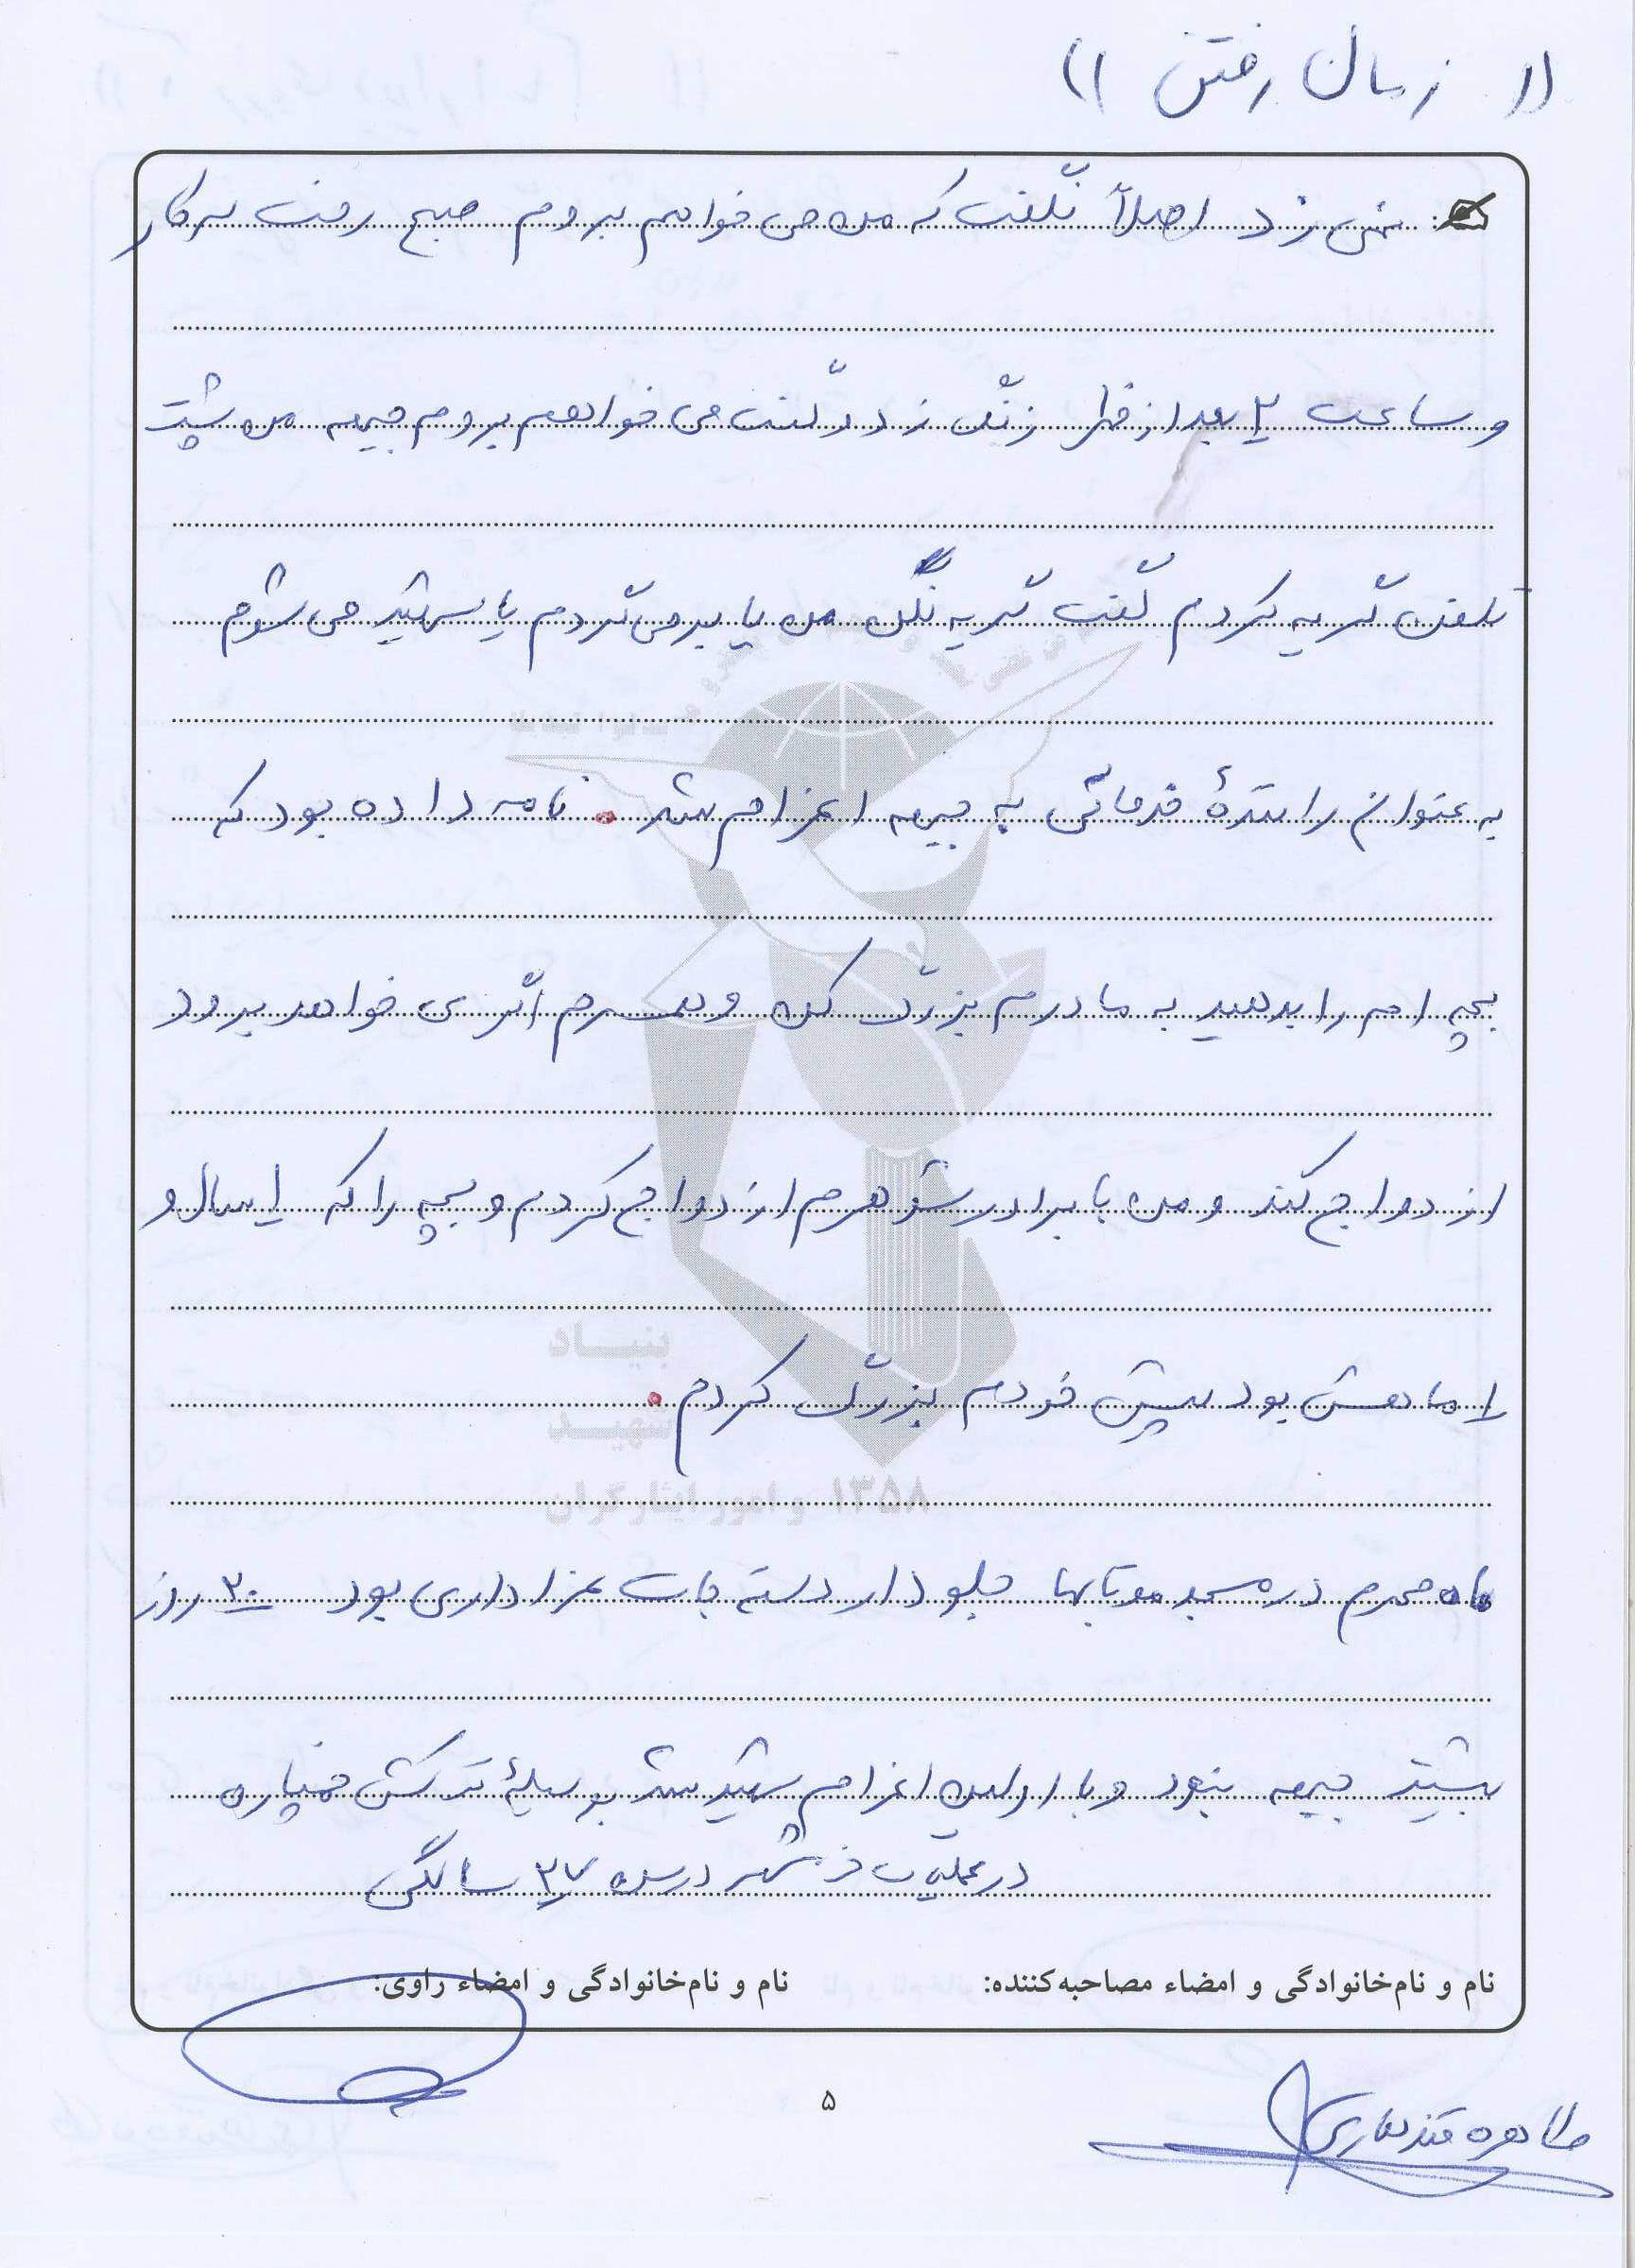 (( زمان رفتن ))
نمی زد اصلاً نگفت که من می خواهم بروم صبح رفت سرکار
و ساعت ۲ بعد از ظهر زنگ زد و گفت می خواهم بروم جبهه من پشت
تلفن گریه کردم گفت گریه نکن من یا برمی گردم یا شهید می شوم
به عنوان رانندۀ به جبهه اعزام شد. نامه داده بود که
بچه ام را بدهید به مادرم بزرگ کند و همسرم اگر می خواهد برود
ازدواج کند و من با برادر شوهرم ازدواج کردم و بچه را که ۱ سال و
ماهش بود پیش خودم بزرگ کردم.
ماه محرم در مسجد جلودار دسته جات عزاداری بود ۲۰ روز
بیشتر جبهه نبود و با اولین اعزام شهید شد بوسیلۀ ترکش خمپاره
در عملیات خرمشهر در سن ۳۷ سالگی
بنیاد
شهید
و امور ایثارگران ۱۳۵۸
نام و نام‌خانوادگی و امضاء مصاحبه‌کننده: نام و نام‌خانوادگی و امضاء راوی:
۵
طاهره قندهاری